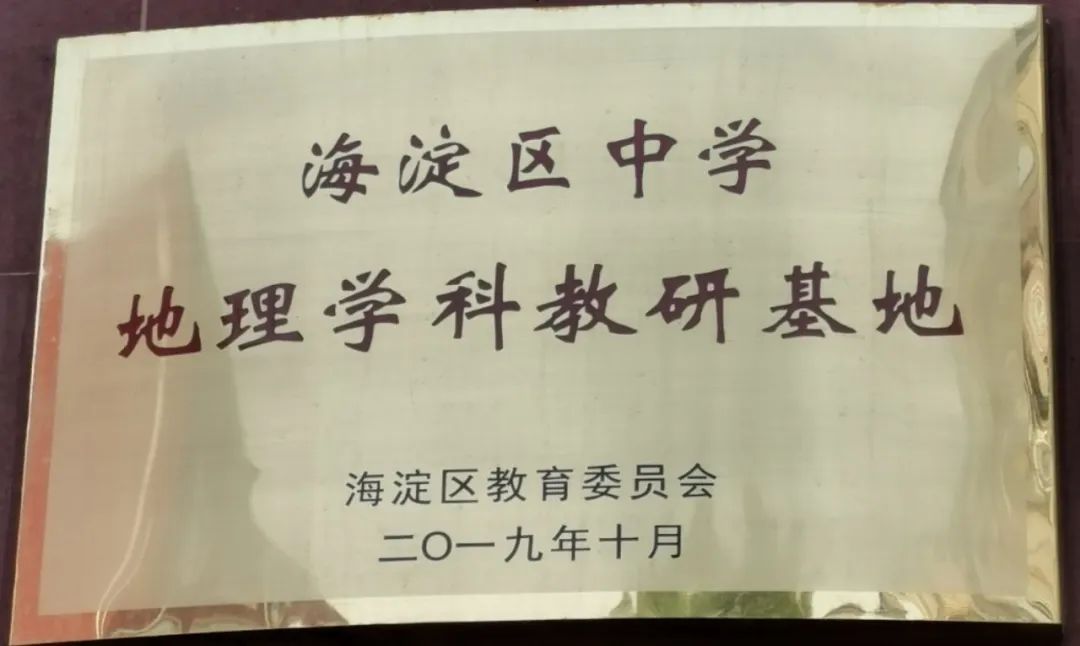 海淀区中学
地理学科教研基地
海淀区教育委员会
二〇一九年十月